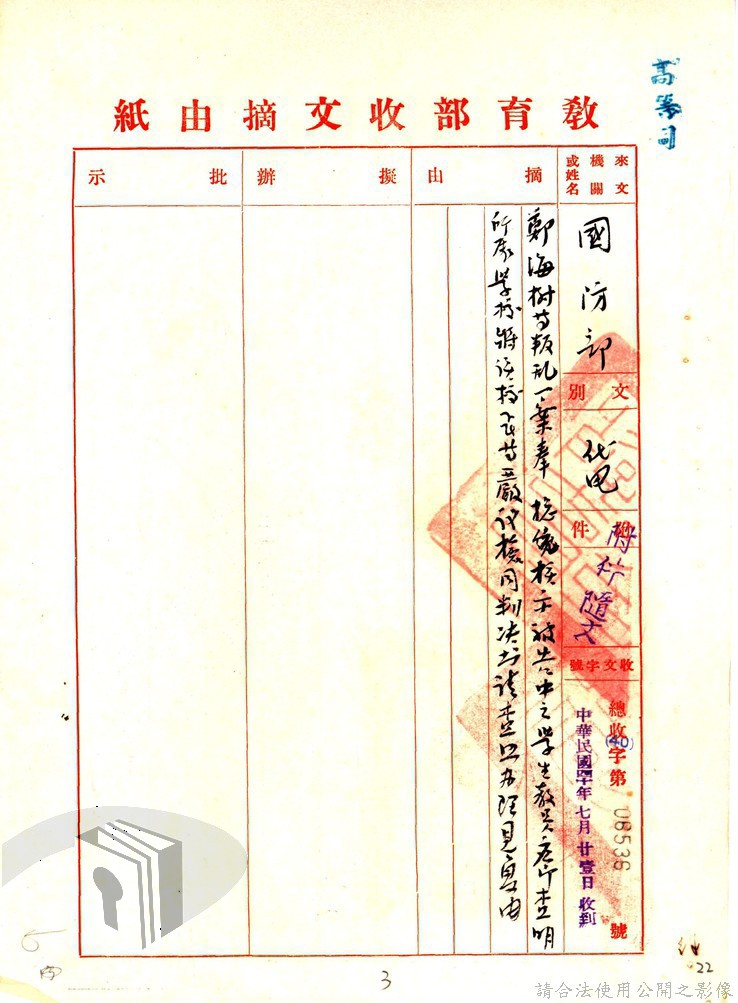 高等司
教育部收文摘由紙
來文機關或姓名
國防部
文別
代電
附件
附件隨文
收文字號
總收(40)字第06536號
中華民國四十年七月廿壹日收到
摘由
鄭海樹等叛乱一案奉 總統核示被告中之學生教員应即查明
所屬學校將該校長等嚴予議處檢同判决书請查照办理見复由
擬辦
批示
6
3
22
請合法使用公開之影像